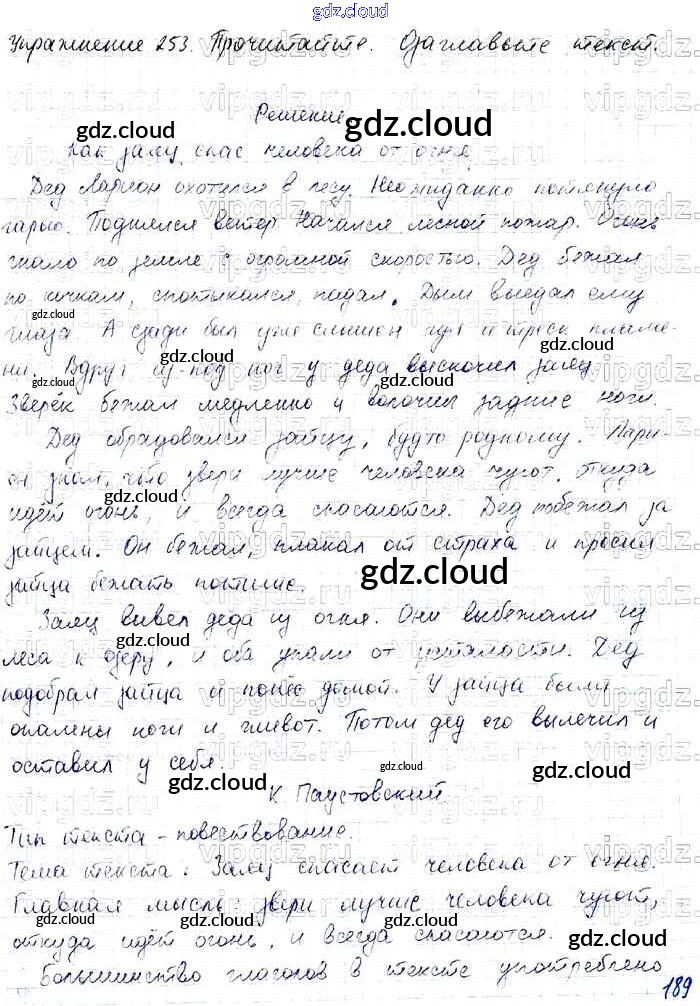 gdz.cloud
Упражнение 253. Прочитайте. Озаглавьте текст.
Решение
Как заяц спас человека от огня.
Дед Ларион охотился в лесу. Неожиданно потянуло
гарью. Поднялся ветер. Начался лесной пожар. Огонь
гнало по земле с огромной скоростью. Дед бежал
по кочкам, спотыкался, падал. Дым выедал ему
глаза. А сзади был уже слышен гул и треск пламе-
ни. Вдруг из-под ног у деда выскочил заяц.
Зверёк бежал медленно и волочил задние ноги.
Дед обрадовался зайцу, будто родному. Лари-
он знал, что звери лучше человека чуют, откуда
идёт огонь, и всегда спасаются. Дед побежал за
зайцем. Он бежал, плакал от страха и просил
зайца бежать потише.
Заяц вывел деда из огня. Они выбежали из
леса к озеру, и оба упали от усталости. Дед
подобрал зайца и понёс домой. У зайца были
опалены ноги и живот. Потом дед его вылечил и
оставил у себя.
К. Паустовский
Тип текста - повествование.
Тема текста: Заяц спасает человека от огня.
Главная мысль: звери лучше человека чуют,
откуда идёт огонь, и всегда спасаются.
Большинство глаголов в тексте употреблено
189